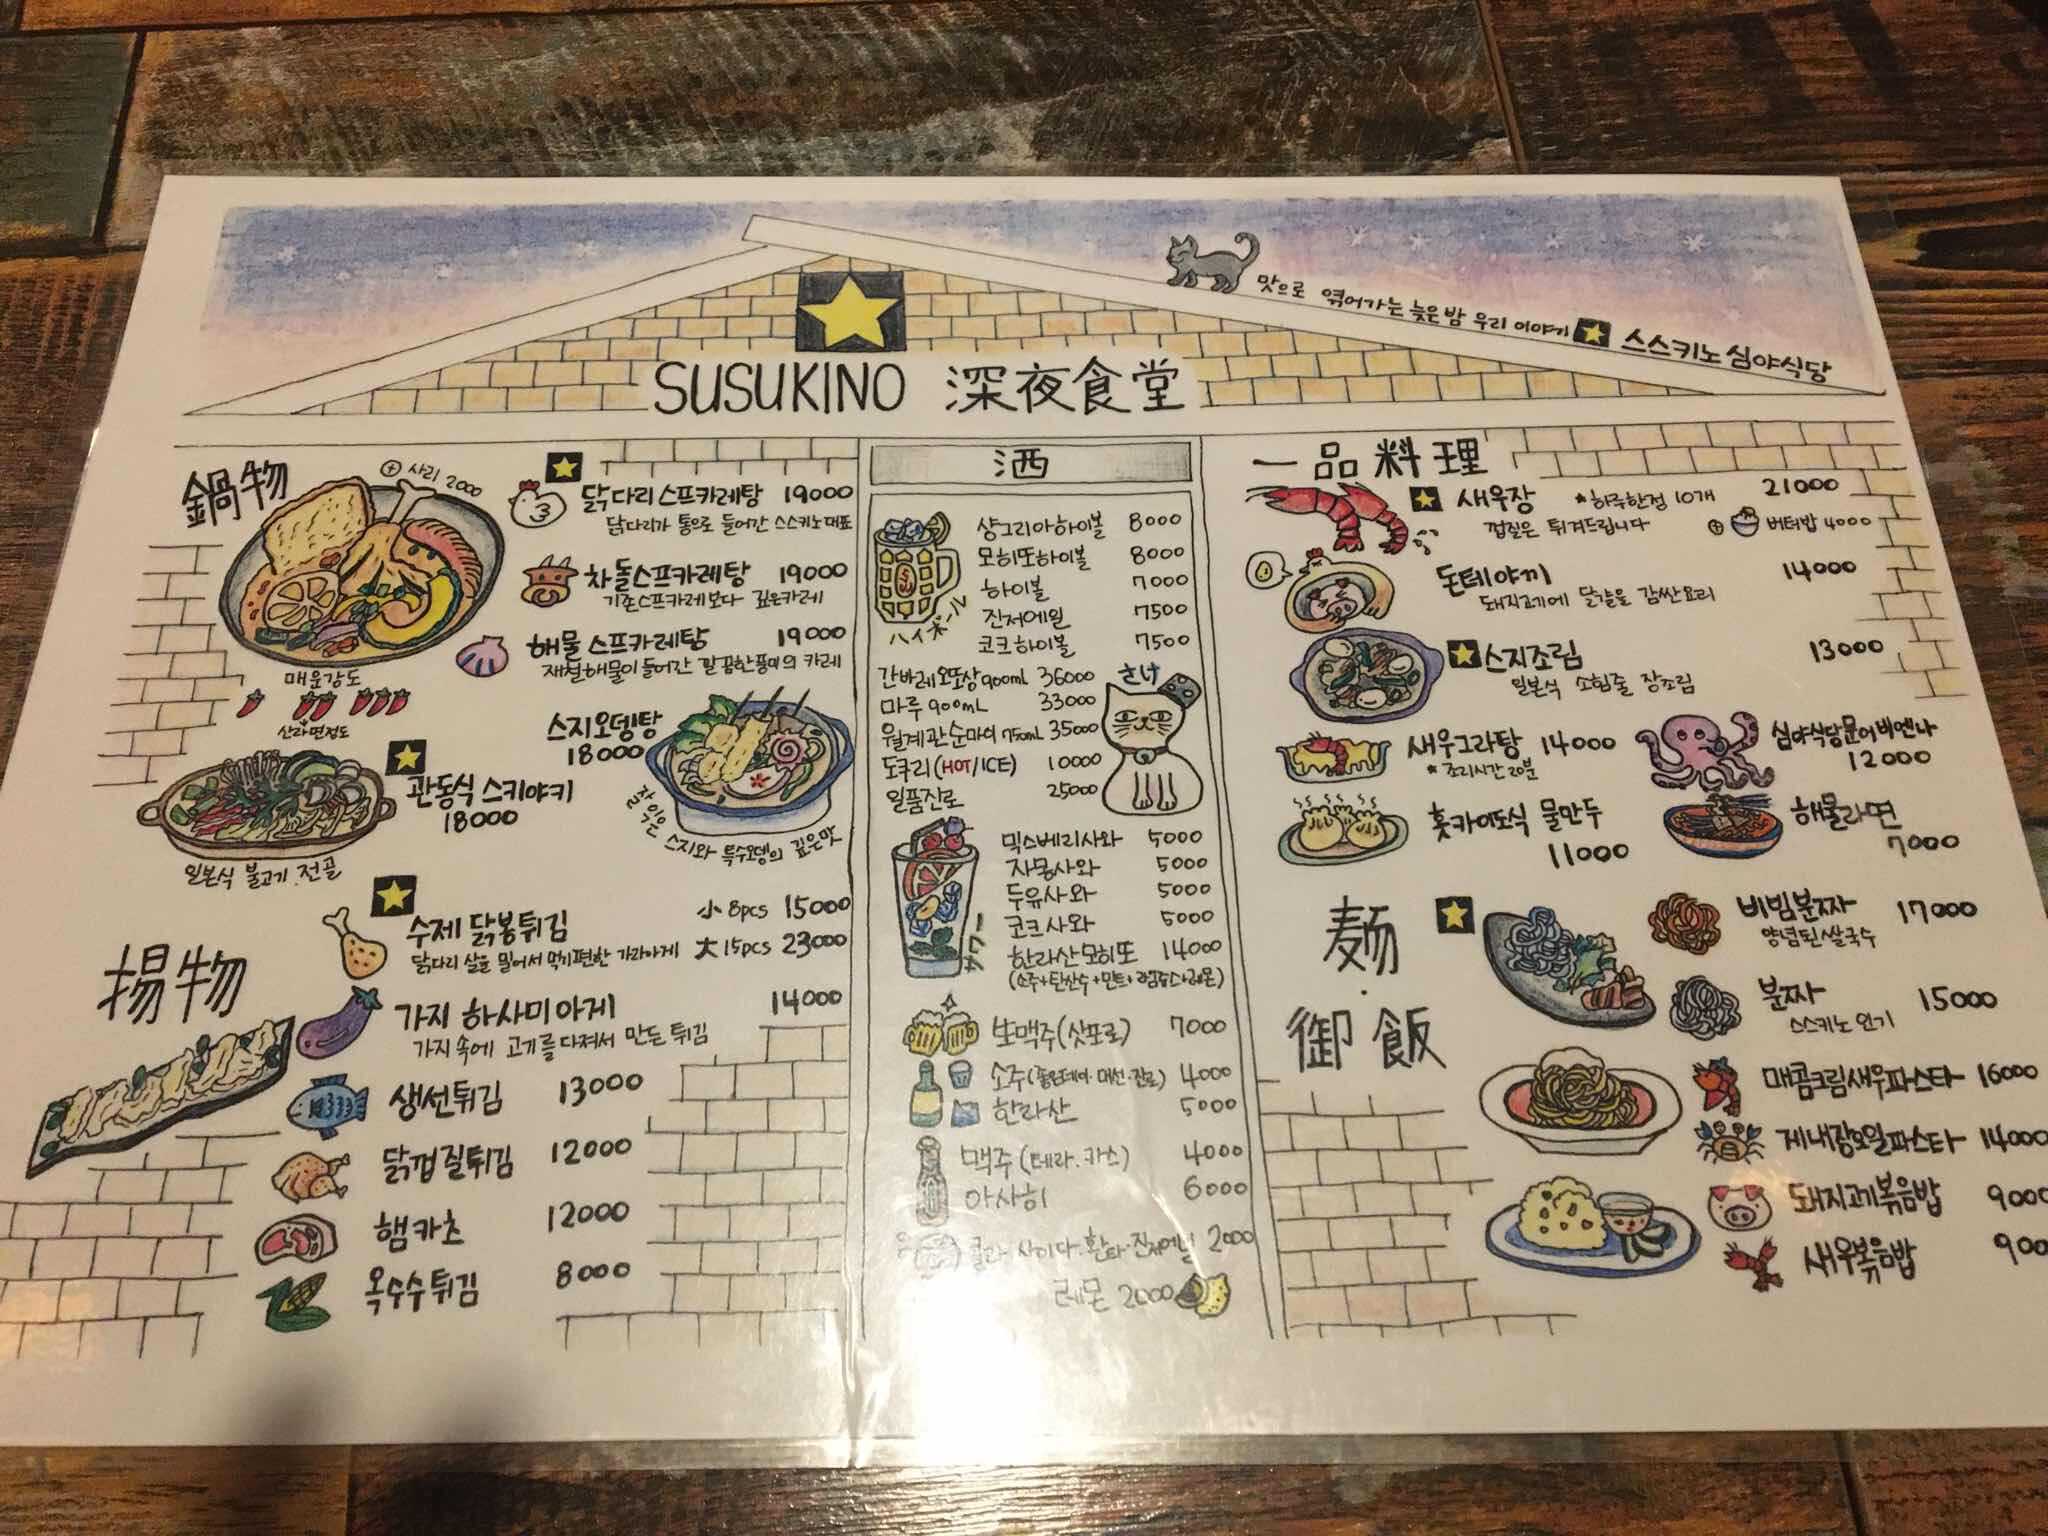 맛으로 엮어가는 늦은 밤 우리 이야기 스스키노 심야식당
SUSUKINO 深夜食堂
鍋物
⊕ 사리 2000
닭다리 스프카레탕 19000
닭다리가 통으로 들어간 스스키노 대표
차돌스프카레탕 19000
기존스프카레보다 깊은카레
해물 스프카레탕 19000
제철해물이 들어간 깔끔한풍미의 카레
매운강도
신라면정도
스지오뎅탕
18000
잘 익은 스지와 특수오뎅의 깊은맛
관동식 스키야키
18000
일본식 불고기.전골
揚物
수제 닭봉튀김 小 8pcs 15000
닭다리 살을 밀어서 먹기편한 가라아게 大 15pcs 23000
가지 하사미아게 14000
가지 속에 고기를 다져서 만든 튀김
생선튀김 13000
닭껍질튀김 12000
햄카츠 12000
옥수수튀김 8000
酒
샹그리아하이볼 8000
모히또하이볼 8000
하이볼 7000
진저에일 7500
코크하이볼 7500
ハイボール
간바레오또상 900ml 36000
마루 900mL 33000
월계관준마이 750ml 35000
도쿠리(HOT/ICE) 10000
일품진로 25000
さけ
믹스베리사와 5000
자몽사와 5000
두유사와 5000
코크사와 5000
한라산모히또 14000
(소주+탄산수+민트+라임쥬스+레몬)
サワー
生맥주(삿포로) 7000
소주( 4000
한라산 5000
맥주(테라.카스) 4000
아사히 6000
콜라.사이다.환타.진저에일 2000
레몬 2000
一品料理
새우장 *하루한정 10개 21000
껍질은 튀겨드립니다 ⊕ 버터밥 4000
돈테야끼 14000
돼지고기에 달걀을 감싼요리
스지조림 13000
일본식 소힘줄 장조림
새우그라탕 14000
*조리시간 20분
심야식당문어비엔나
12000
홋카이도식 물만두
11000
해물라면
7000
麺・御飯
비빔분짜 17000
양념된쌀국수
분짜 15000
스스키노 인기
매콤크림새우파스타 16000
게내장오일파스타 14000
돼지고기볶음밥 9000
새우볶음밥 900